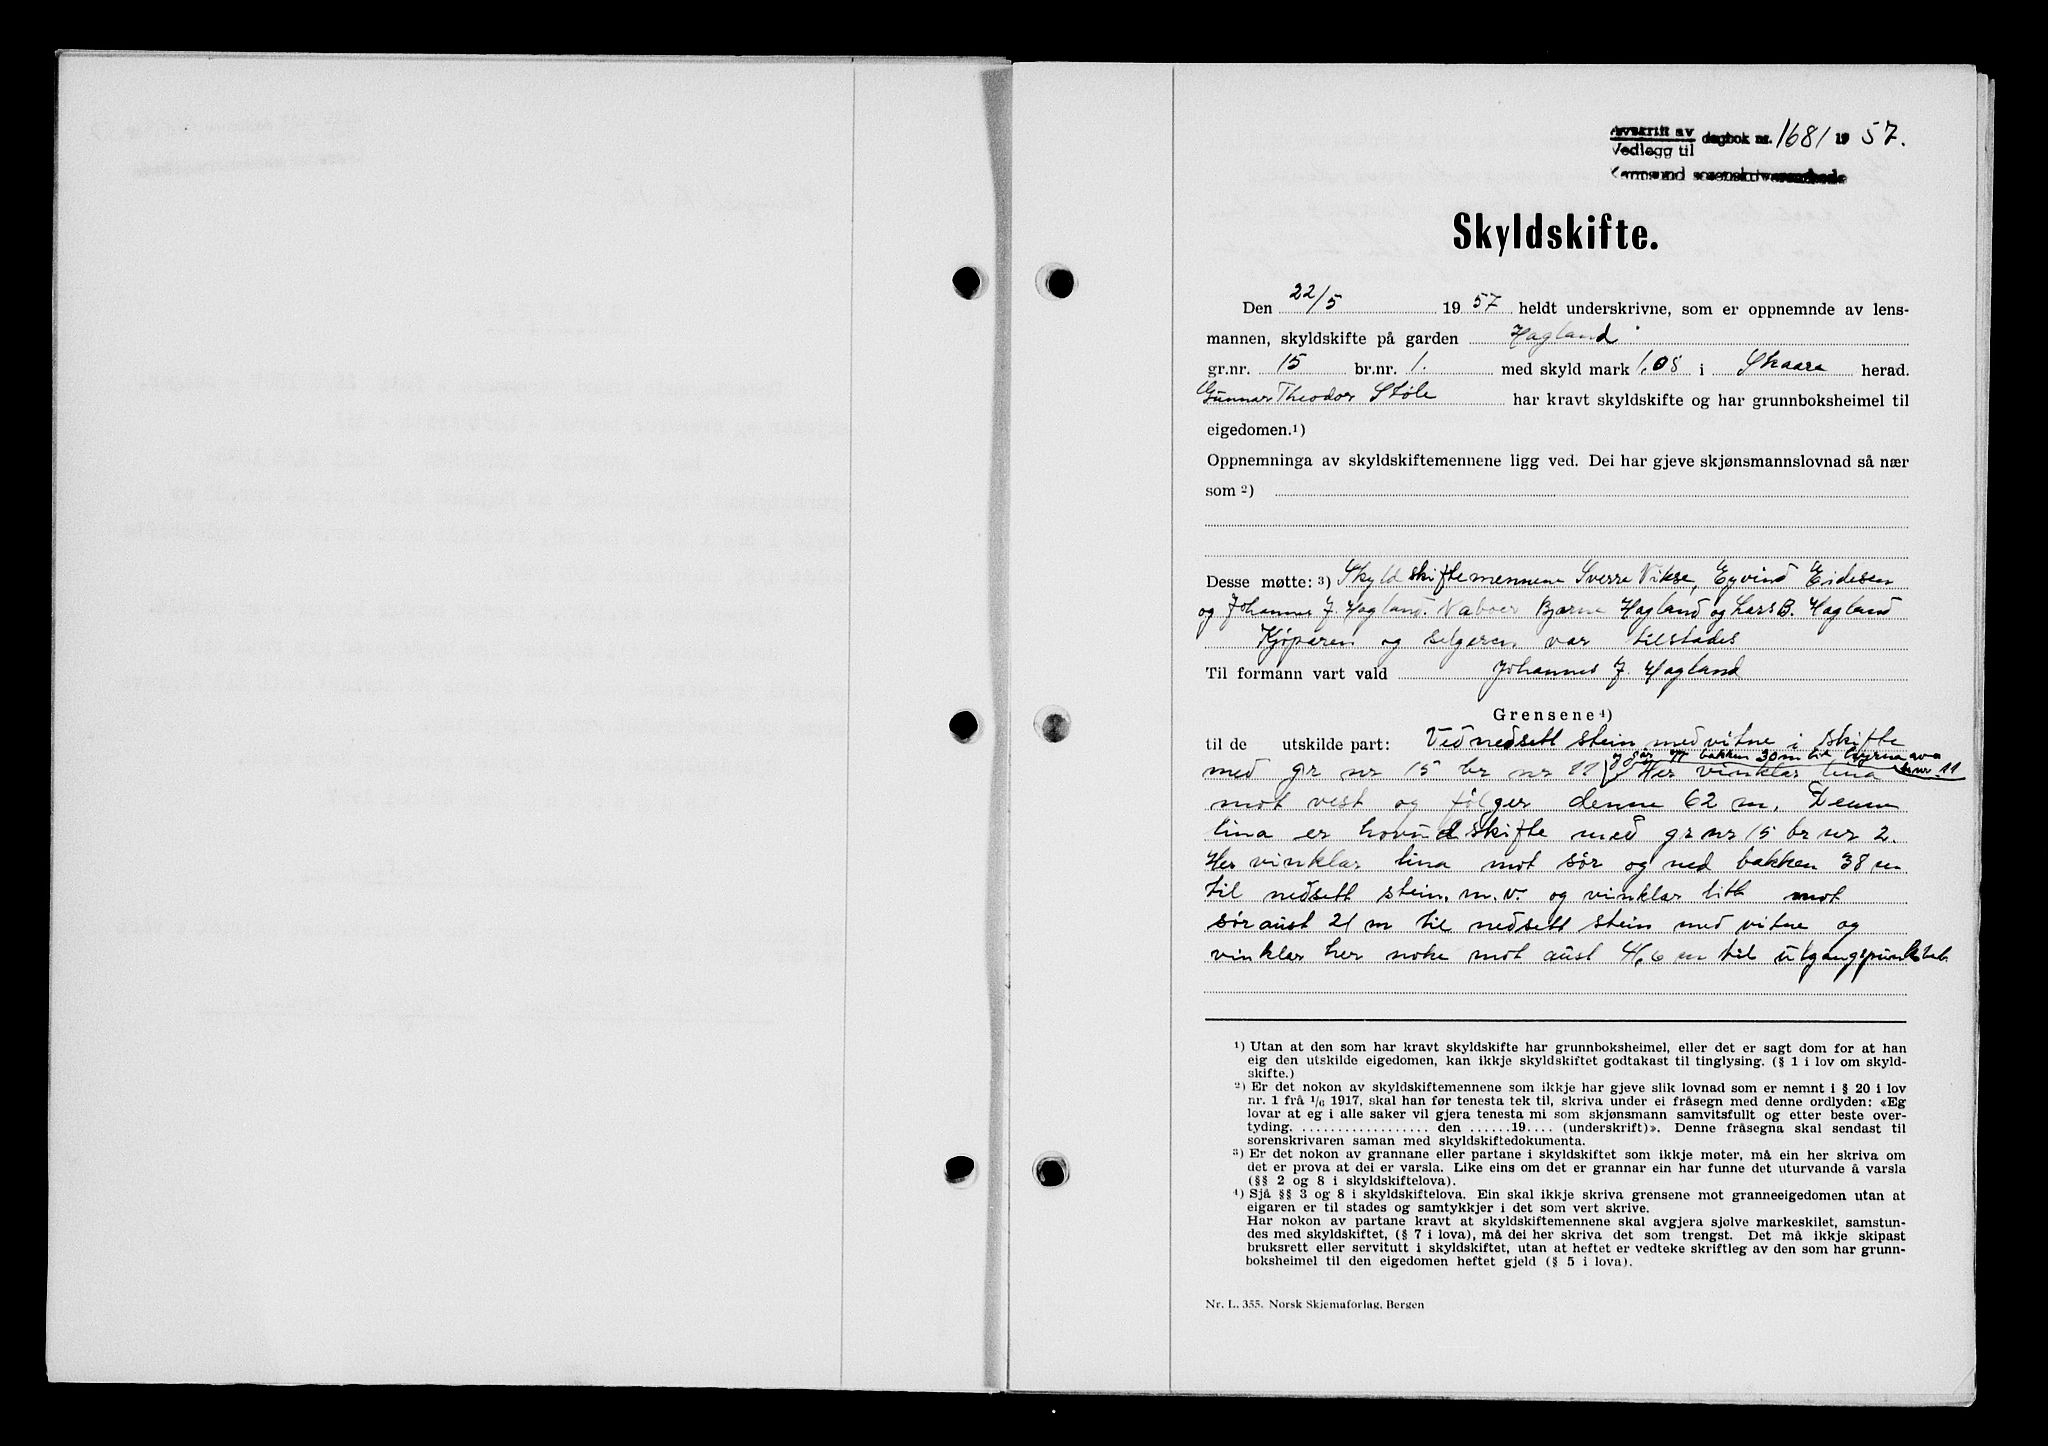 Avskrift av
Vedlegg til
dagbok nr. 1681 1957.
Karmsund sorenskriverembede
Skyldskifte.
Den 22/5 1957 heldt underskrivne, som er oppnemnde av lens-
mannen, skyldskifte på garden Hagland
gr.nr. 15 br.nr. 1. med skyld mark 1,08 i Skaare herad.
Gunnar Theodor Støle har kravt skyldskifte og har grunnboksheimel til
eigedomen.1)
Oppnemninga av skyldskiftemennene ligg ved. Dei har gjeve skjønsmannslovnad så nær
som 2)
Desse møtte: 3) Skyldskiftemennene Sverre Vikse, Eyvind Eidesen
og Johannes J. Hagland. Naboer Bjarne Hagland og Lars B. Hagland
Kjøperen og selgeren var tilstades
Til formann vart vald Johannes J. Hagland
Grensene 4)
til de utskilde part: Ved nedsett stein med vitne i skifte
og går opp bakken 30 m til hjørna av
br nr 11
med gr nr 15 br nr 11 Her vinklar lina
mot vest og følger denne 62 m. Denne
lina er hovudskifte med gr nr 15 br nr 2.
Her vinklar lina mot sør og ned bakken 38 m
til nedsett stein. m. v. og vinklar litt mot
søraust 21 m til nedsett stein med vitne og
vinklar her noke mot aust 41,6 m til utgangspunktet
1) Utan at den som har kravt skyldskifte har grunnboksheimel, eller det er sagt dom for at han
eig den utskilde eigedomen, kan ikkje skyldskiftet godtakast til tinglysing. (§ 1 i lov om skyld-
skifte.)
2) Er det nokon av skyldskiftemennene som ikkje har gjeve slik lovnad som er nemnt i § 20 i lov
nr. 1 frå 1/6 1917, skal han før tenesta tek til, skriva under ei fråsegn med denne ordlyden: «Eg
lovar at eg i alle saker vil gjera tenesta mi som skjønsmann samvitsfullt og etter beste over-
tyding. .................. den ......19.... (underskrift)». Denne fråsegna skal sendast til
sorenskrivaren saman med skyldskiftedokumenta.
3) Er det nokon av grannane eller partane i skyldskiftet som ikkje møter, må ein her skriva om
det er prova at dei er varsla. Like eins om det er grannar ein har funne det uturvande å varsla
(§§ 2 og 8 i skyldskiftelova).
4) Sjå §§ 3 og 8 i skyldskiftelova. Ein skal ikkje skriva grensene mot granneeigedomen utan at
eigaren er til stades og samtykkjer i det som vert skrive.
Har nokon av partane kravt at skyldskiftemennene skal avgjera sjølve markeskilet, samstun-
des med skyldskiftet, (§ 7 i lova), må dei her skriva det som trengst. Det må ikkje skipast
bruksrett eller servitutt i skyldskiftet, utan at heftet er vedteke skriftleg av den som har grunn-
boksheimel til den eigedomen heftet gjeld (§ 5 i lova).
Nr. L. 355. Norsk Skjemaforlag, Bergen